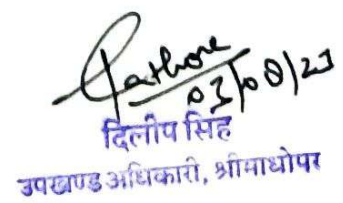 Rathore
03/08/23
दिलीप सिंह
उपखण्ड अधिकारी, श्रीमाधोपर